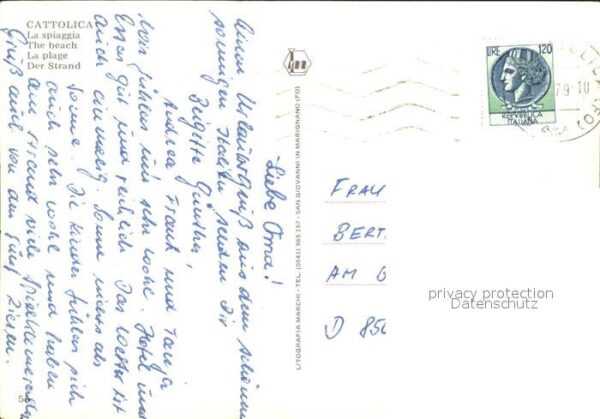 CATTOLICA
La spiaggia
The beach
La plage
Der Strand
Liebe Oma!
Einen Urlaubsgruß aus dem schönen
sonnigen Italien senden Dir
Brigitte, Günter,
Andrea, Frank und Tanja
Wir fühlen uns sehr wohl. Hotel und
Essen gut und reichlich. Das Wetter ist
auch einmalig. Sonne niemals
Sonne. Die Kinder fühlen sich
auch sehr wohl und haben
am Strand viele Spielkameraden
Gruß auch von am
LITOGRAFIA MARCHI - TEL. (0541) 965 157 - SAN GIOVANNI IN MARIGNANO (FO)
LIRE 120
REPUBBLICA
ITALIANA
79-10
FRAU
BERT
AM G
D 850
privacy protection
Datenschutz